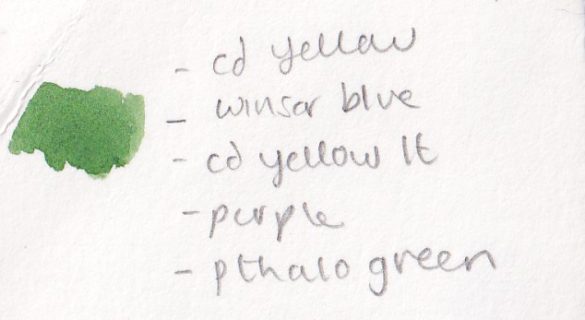 - cd yellow
- winsor blue
- cd yellow lt
- purple
- pthalo green